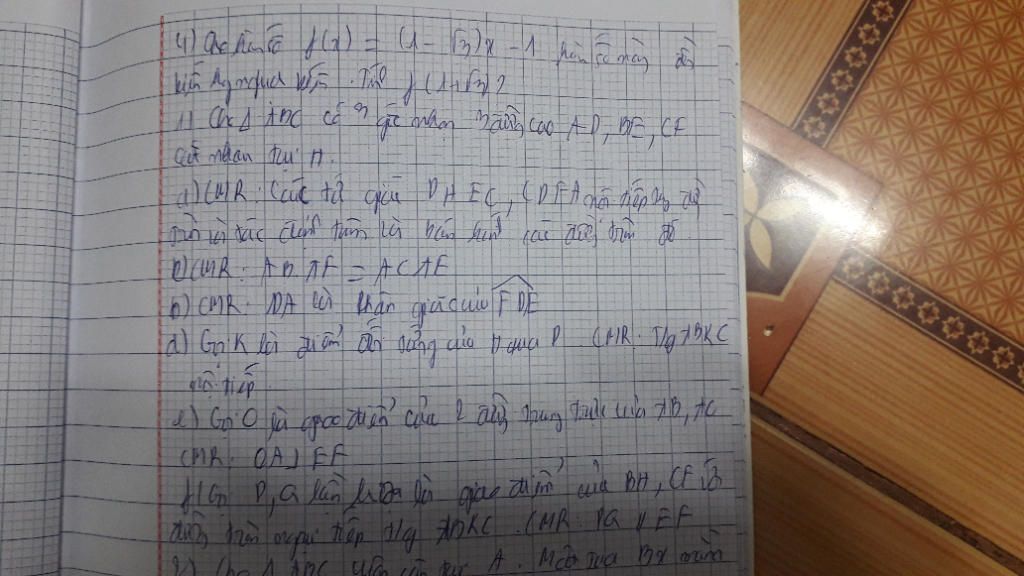 4) Cho hàm số f(x) = (1 - √3)x - 1 hàm số này đồng
biến hay nghịch biến. Tính f(1+√3)?
1) Cho Δ ABC có 3 góc nhọn 3 đường cao AD, BE, CF
cắt nhau tại H.
a) CMR: Các tứ giác DHEC, CDFA nội tiếp đg
tròn và xác định tâm và bán kính các đường tròn đó.
b) CMR: AB.AF = AC.AE
DA là phân giác của FDE
d) Gọi K là điểm đối xứng của H qua D CMR: T/g ABKC
nội tiếp.
e) Gọi O là giao điểm của 2 đường trung trực của AB, AC
CMR: OA ⊥ EF
f) Gọi P, Q lần lượt là giao điểm của BH, CF và
đường tròn ngoại tiếp t/g ABKC. CMR: PQ // EF
Cho Δ ABC cân tại A.